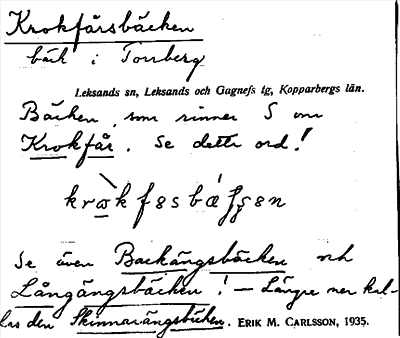 Krokfårsbäcken
bäck i Tonberg
Leksands sn, Leksands och Gagnefs tg, Kopparbergs län.
Bäcken, som rinner S om
Krokfår. Se detta ord!
Se även Backängsbäcken och
Långängsbäcken! — Längre ner kal-
las den Skinnarängsbäcken. ERIK M. CARLSSON, 1935.